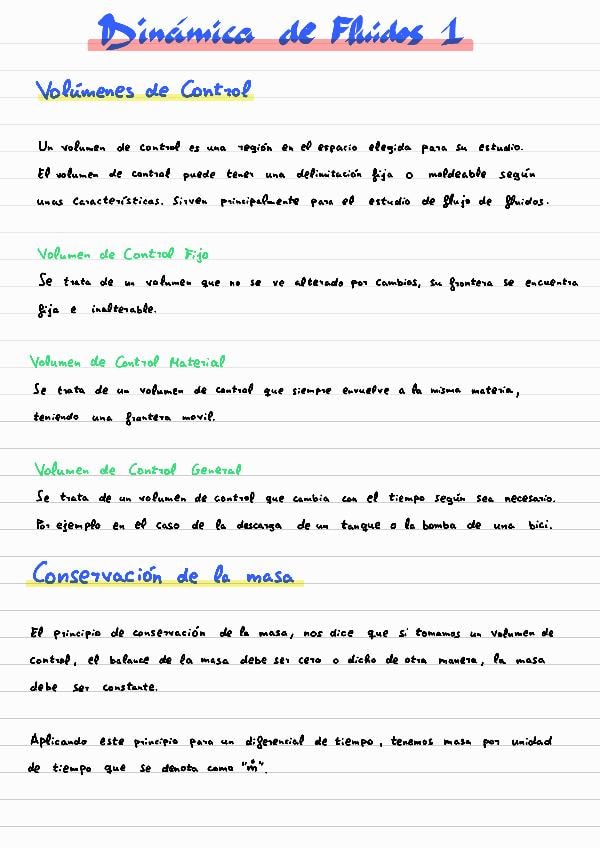 Dinámica de Fluidos 1
Volúmenes de Control
Un volumen de control es una región en el espacio elegida para su estudio.
El volumen de control puede tener una delimitación fija o moldeable según
unas características. Sirven principalmente para el estudio de flujo de fluidos.
Volumen de Control Fijo
Se trata de un volumen que no se ve alterado por cambios, su frontera se encuentra
fija e inalterable.
Volumen de Control Material
Se trata de un volumen de control que siempre envuelve a la misma materia,
teniendo una frontera movil.
Volumen de Control General
Se trata de un volumen de control que cambia con el tiempo según sea necesario.
Por ejemplo en el caso de la descarga de un tanque o la bomba de una bici.
Conservación de la masa
El principio de conservación de la masa, nos dice que si tomamos un volumen de
control, el balance de la masa debe ser cero o dicho de otra manera, la masa
debe ser constante.
Aplicando este principio para un diferencial de tiempo, tenemos masa por unidad
de tiempo que se denota como "ṁ".